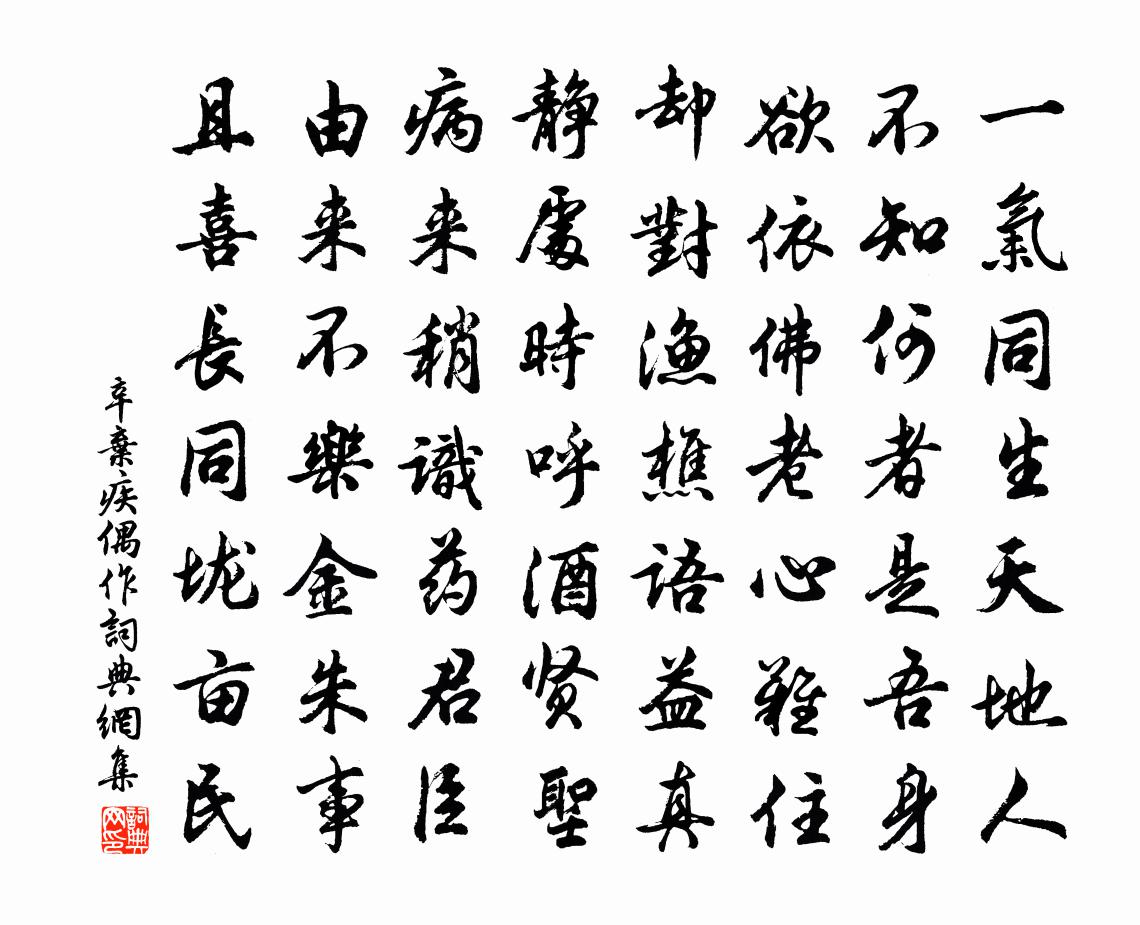 一氣同生天地人
不知何者是吾身
欲依佛老心難住
却對漁樵語益真
靜處時呼酒贤聖
病来稍識药君臣
由来不樂金朱事
且喜長同垅亩民
辛棄疾偶作詞典網集
詞典网印